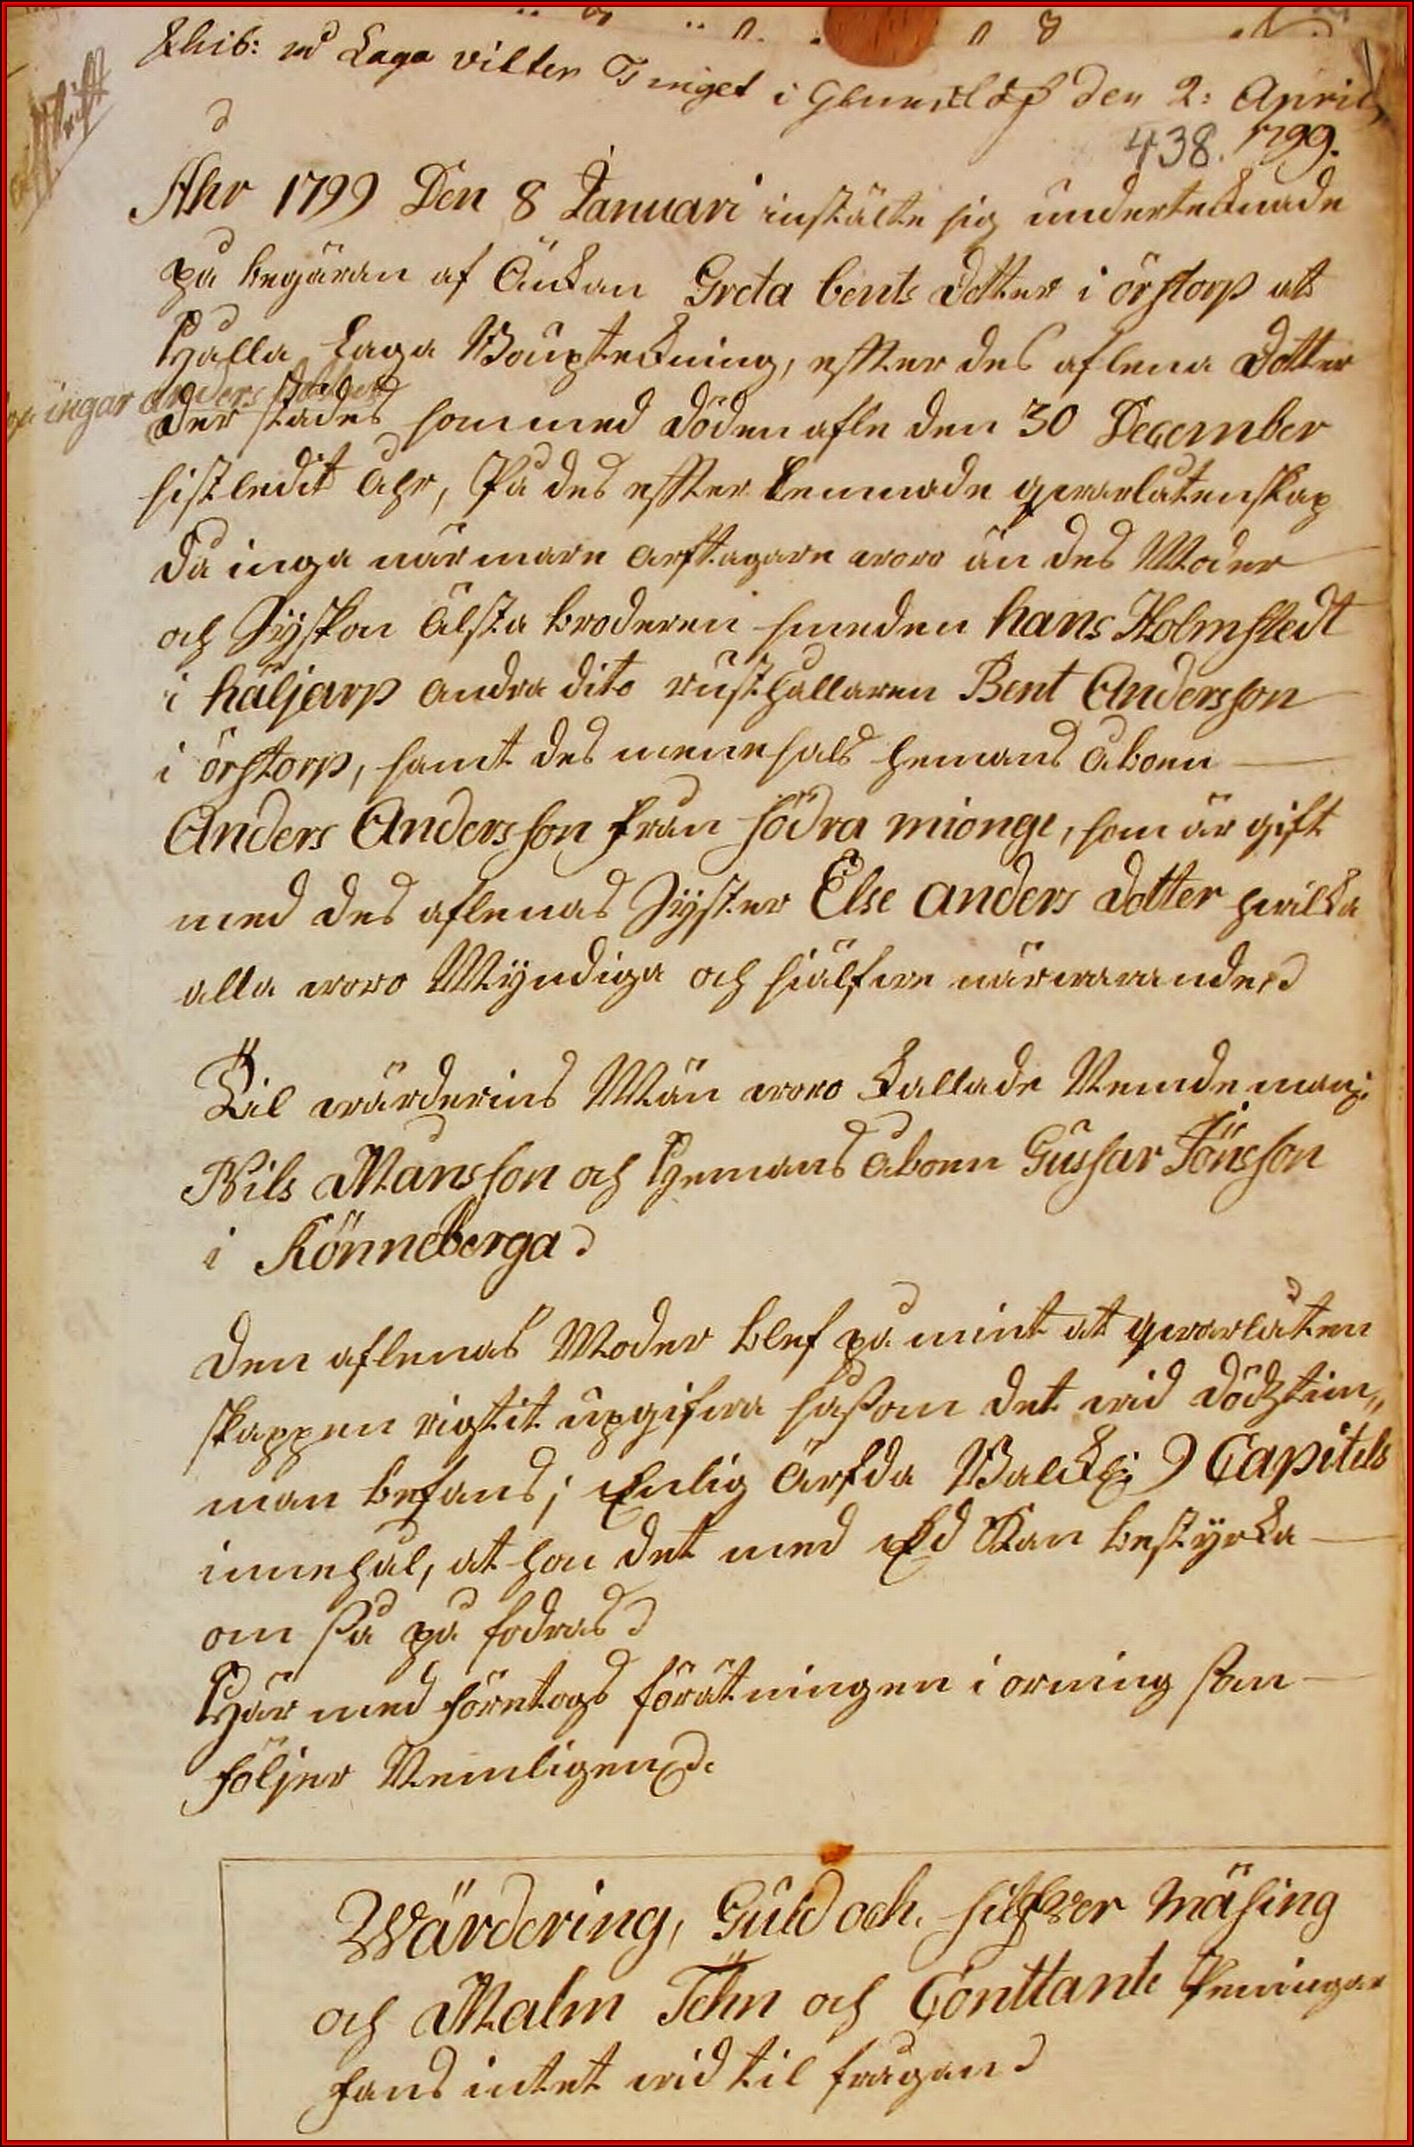 Exhib: vid Laga vikten Tinget i Glumslöf den 2: April
1799.
438.
Åhr 1799 Den 8 Januari instälte sig undertecknade
på begäran af Änkan Greta bents dotter i örstorp at
Hålla Laga Bouptekning, efter des aflena dotter
ingar anders dotter
der städes som med döden afle den 30 December
sistledit åhr, På des efter lemnade qvarlåtenskap
då inga närmare arftagare woro än des Moder
och Syskon älsta broderen smeden hans Holmstedt
i häljarp andra dito rusthållaren Bent Andersson
i örstorp, samt des hemans åboen
Anders Andersson från södra miönge, som är gift
med des aflenas Syster Else anders dotter hvilka
alla woro Myndiga och siälfwe närwarande
Til wärderins Män woro kallade Nemdeman
Nils Månsson och Hemans åboen Gussar Jönsson
i Rönneberga
Den aflenas Moder blef på mint at qvarlåten
skappen rigtit upgifwa såsom det wid dödztim„
man befans; Enlig ärfda Balck: 9 Capitels
innehål, at hon det med Ed kan bestyrka
om så på fodras
Här med företogs förätningen i orning som
följer Nemligen
Wärdering, Guld och silfwer Mäsing
och Malm Tehn och Conttante Peningar
fans intet wid til frågan